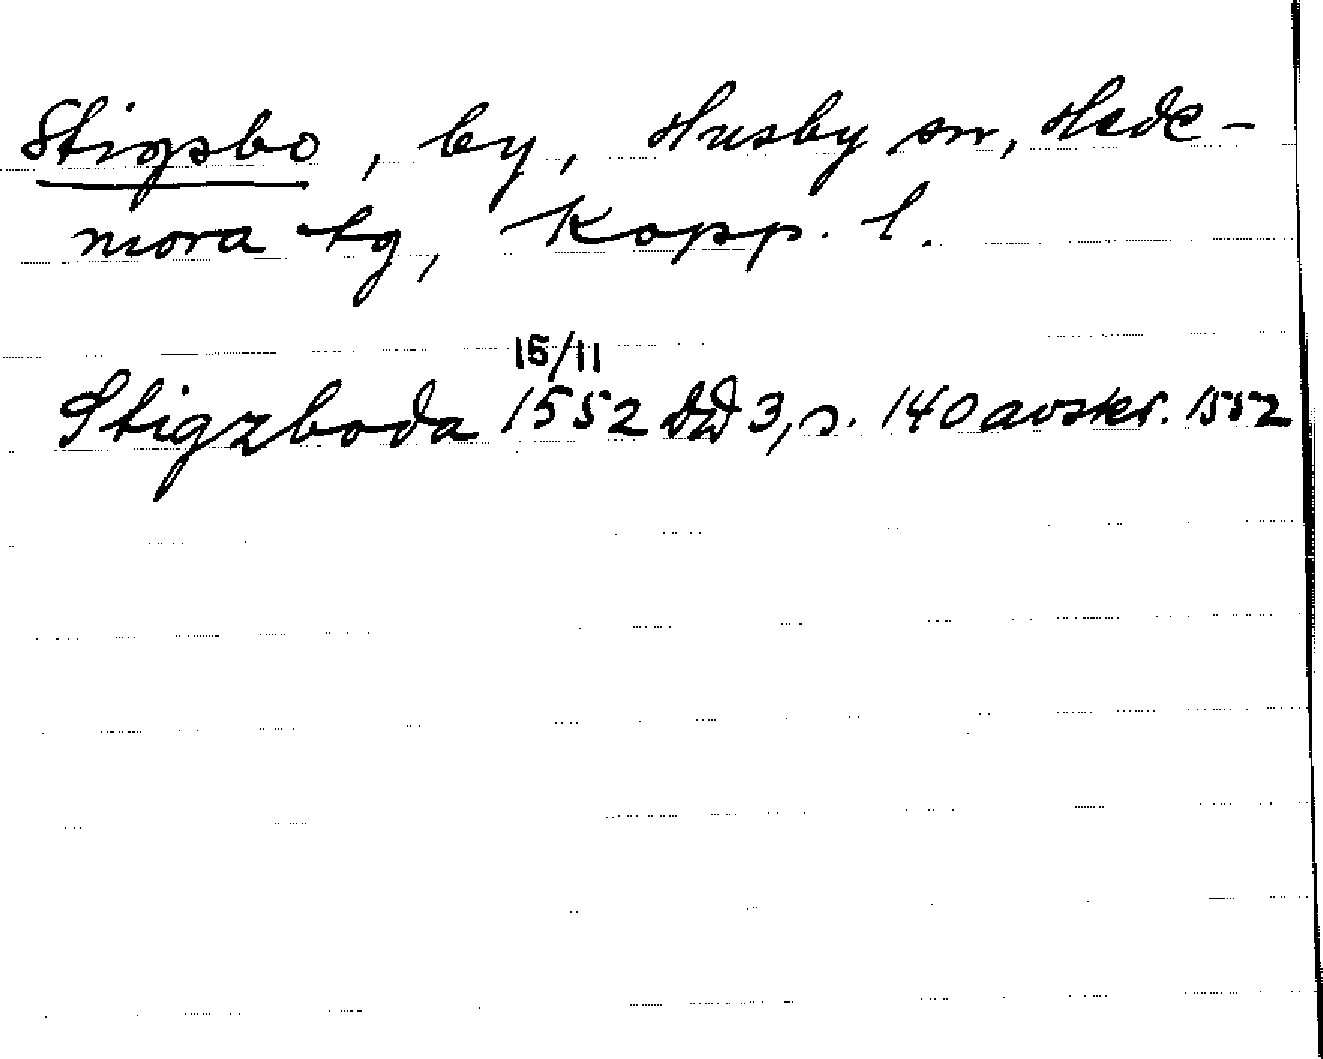 Stigsbo, by, Husby sn, Hede-
mora tg, Kopp. l.
15/11
Stigzboda 1552 DD 3, s. 140 avskr. 1552